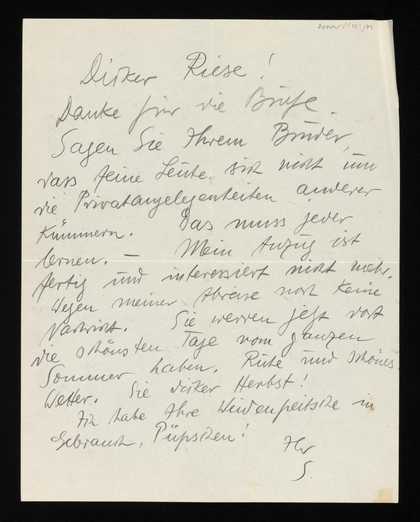 Dicker Riese!
Danke für die Briefe.
Sagen Sie Ihrem Bruder,
dass feine Leute sich nicht um
die Privatangelegenheiten anderer
kümmern. Das muss jeder
lernen. — Mein Anzug ist
fertig und interessiert nicht mehr.
Wegen meiner Abreise noch keine
Nachricht. Sie werden jetzt dort
die schönsten Tage vom ganzen
Sommer haben. Ruhe und schönes
Wetter. Sie dicker Herbst!
Ich habe Ihre Weidenpeitsche in
Gebrauch, Püppchen!
Ihr
S.